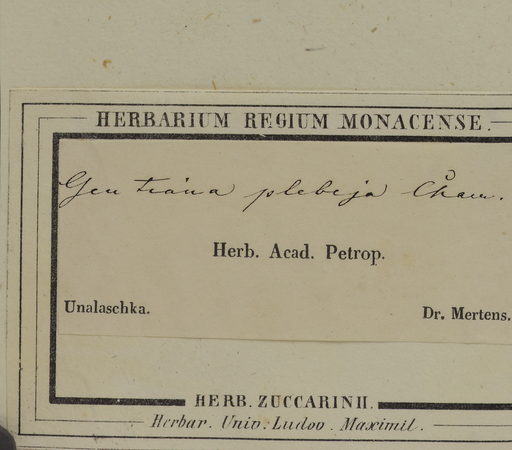 HERBARIUM REGIUM MONACENSE.
Gentiana plebeja Cham.
Herb. Acad. Petrop.
Unalaschka.
Dr. Mertens.
HERB. ZUCCARINII.
Herbar. Univ. Ludov. Maximil.